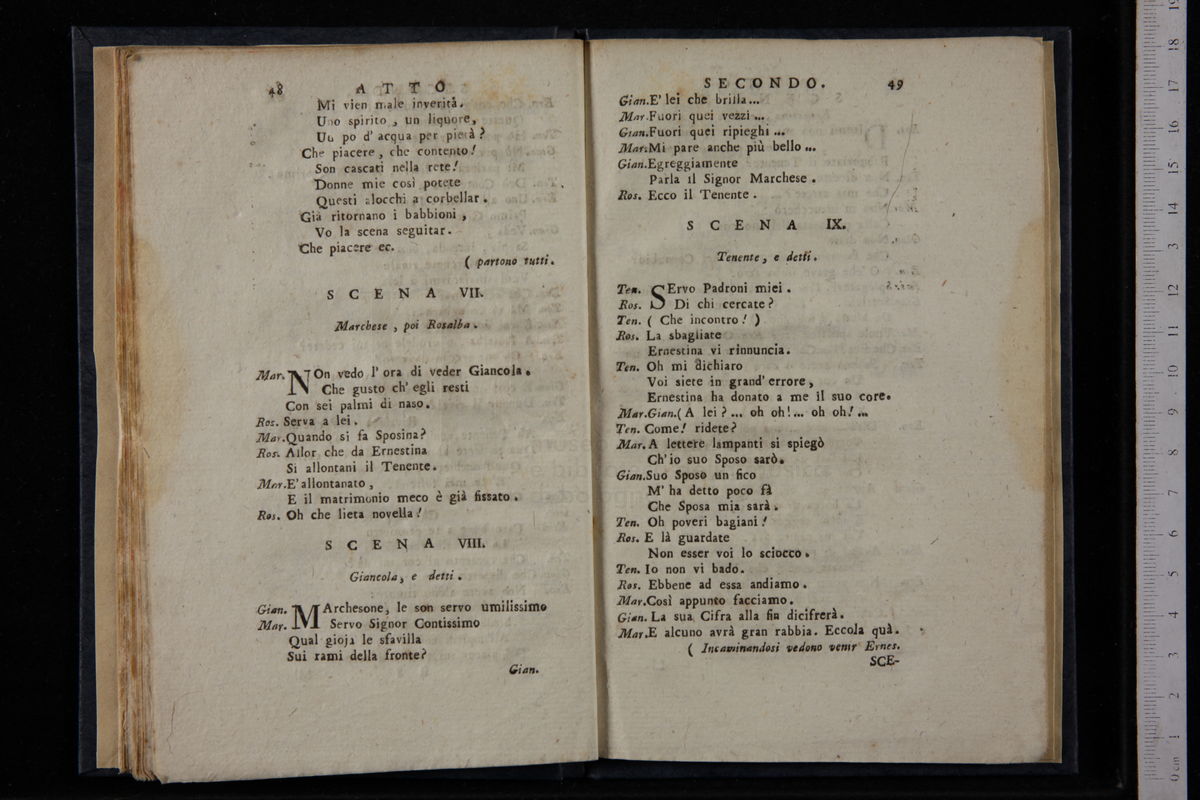 48 ATTO
Mi vien male inverità.
Uno spirito, un liquore,
Un po d' acqua per pietà?
Che piacere, che contento!
Son cascati nella rete!
Donne mie così potete
Questi alocchi a corbellar.
Già ritornano i babbioni,
Vo la scena seguitar.
Che piacere ec.
( partono tutti.
SCENA VII.
Marchese, poi Rosalba.
Mar. NOn vedo l' ora di veder Giancola.
Che gusto ch' egli resti
Con sei palmi di naso.
Ros. Serva a lei.
Mar. Quando si fa Sposina?
Ros. Allor che da Ernestina
Si allontani il Tenente.
Mar. E' allontanato,
E il matrimonio meco è già fissato.
Ros. Oh che lieta novella!
SCENA VIII.
Giancola, e detti.
Gian. MArchesone, le son servo umilissimo
Mar. Servo Signor Contissimo
Qual gioja le sfavilla
Sui rami della fronte?
Gian.
SECONDO. 49
Gian. E' lei che brilla...
Mar. Fuori quei vezzi...
Gian. Fuori quei ripieghi...
Mar. Mi pare anche più bello...
Gian. Egreggiamente
Parla il Signor Marchese.
Ros. Ecco il Tenente.
SCENA IX.
Tenente, e detti.
Ten. SErvo Padroni miei.
Ros. Di chi cercate?
Ten. ( Che incontro! )
Ros. La sbagliate
Ernestina vi rinnuncia.
Ten. Oh mi dichiaro
Voi siete in grand' errore,
Ernestina ha donato a me il suo core.
Mar. Gian. ( A lei?... oh oh!... oh oh!...
Ten. Come! ridete?
Mar. A lettere lampanti si spiegò
Ch' io suo Sposo sarò.
Gian. Suo Sposo un fico
M' ha detto poco fà
Che Sposa mia sarà.
Ten. Oh poveri bagiani!
Ros. E là guardate
Non esser voi lo sciocco.
Ten. Io non vi bado.
Ros. Ebbene ad essa andiamo.
Mar. Così appunto facciamo.
Gian. La sua Cifra alla fin dicifrerà.
Mar. E alcuno avrà gran rabbia. Eccola quà.
( Incaminandosi vedono venir Ernes.
SCE-
0 cm 1 2 3 4 5 6 7 8 9 10 11 12 13 14 15 16 17 18 19